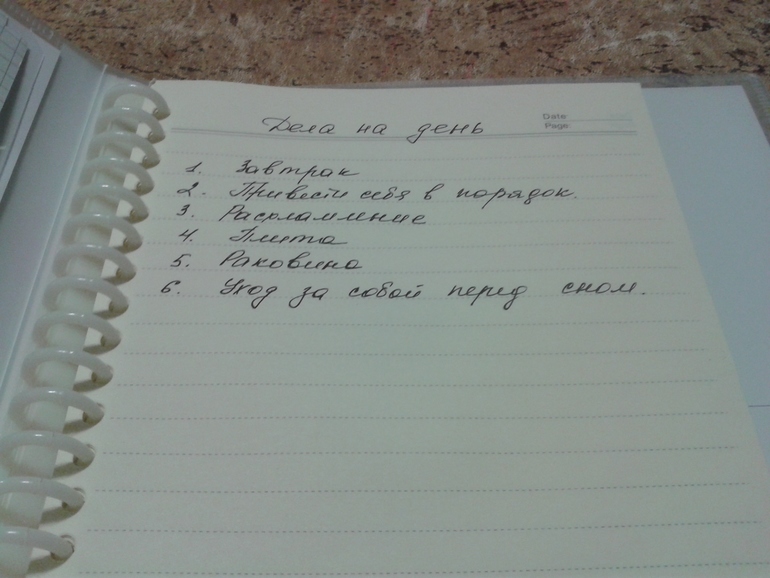 Дела на день
Date
Page
1. Завтрак
2. Привести себя в порядок.
3. Расхламление
4. Плита
5. Раковина
6. Уход за собой перед сном.